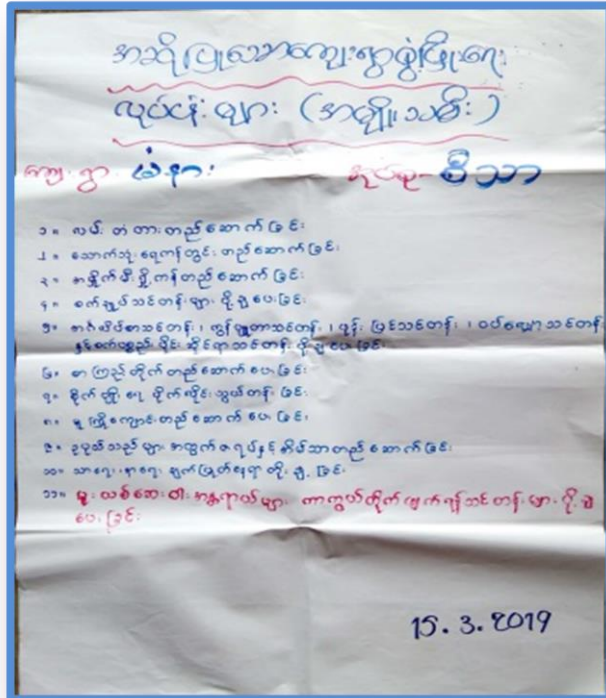 အဆိုပြုသောကျေးရွာဖွံ့ဖြိုးရေး
လုပ်ငန်းများ (အမျိုးသမီး)
ကျေးရွာ- အုပ်စု- စီသာ
၁။ လမ်း တံတား တည်ဆောက်ခြင်း
၂။ သောက်သုံးရေကန်တွင်း တည်ဆောက်ခြင်း
၃။ အမှိုက်မီးရှို့ကန်တည်ဆောက်ခြင်း
၄။ စက်ချုပ်သင်တန်းများ ပို့ချပေးခြင်း
၅။ အင်္ဂလိပ်စာသင်တန်း၊ ကွန်ပျူတာသင်တန်း၊ ဖုန်းပြင်သင်တန်း၊ ဝပ်ရှော့သင်တန်း
နှင့်စက်ပစ္စည်းပိုင်းဆိုင်ရာသင်တန်းပို့ချပေးခြင်း
၆။ စာကြည့်တိုက်တည်ဆောက်ပေးခြင်း
၇။ စိုက်ပျိုးရေ ပိုက်လိုင်းသွယ်တန်းခြင်း
၈။ မူကြိုကျောင်းတည်ဆောက်ပေးခြင်း
၉။ ဥပုသ်သည်များအတွက်ဇရပ်နှင့်အိမ်သာတည်ဆောက်ခြင်း
၁၀။ သာရေး၊ နာရေး ချက်ပြုတ်နေရာတိုးချဲ့ခြင်း
၁၁။ မူးယစ်ဆေးဝါးအန္တရာယ်များ ကာကွယ်တိုက်ဖျက်ရန်သင်တန်းများပို့ချ
ပေးခြင်း
15.3.2019